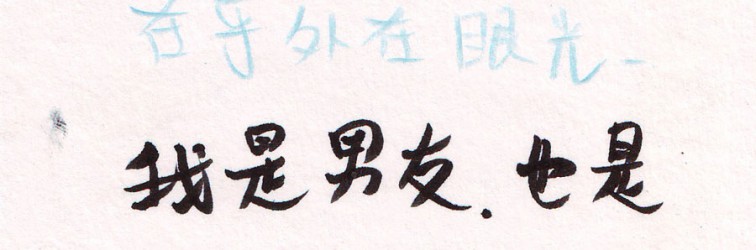 在乎外在眼光-
我是男友.也是